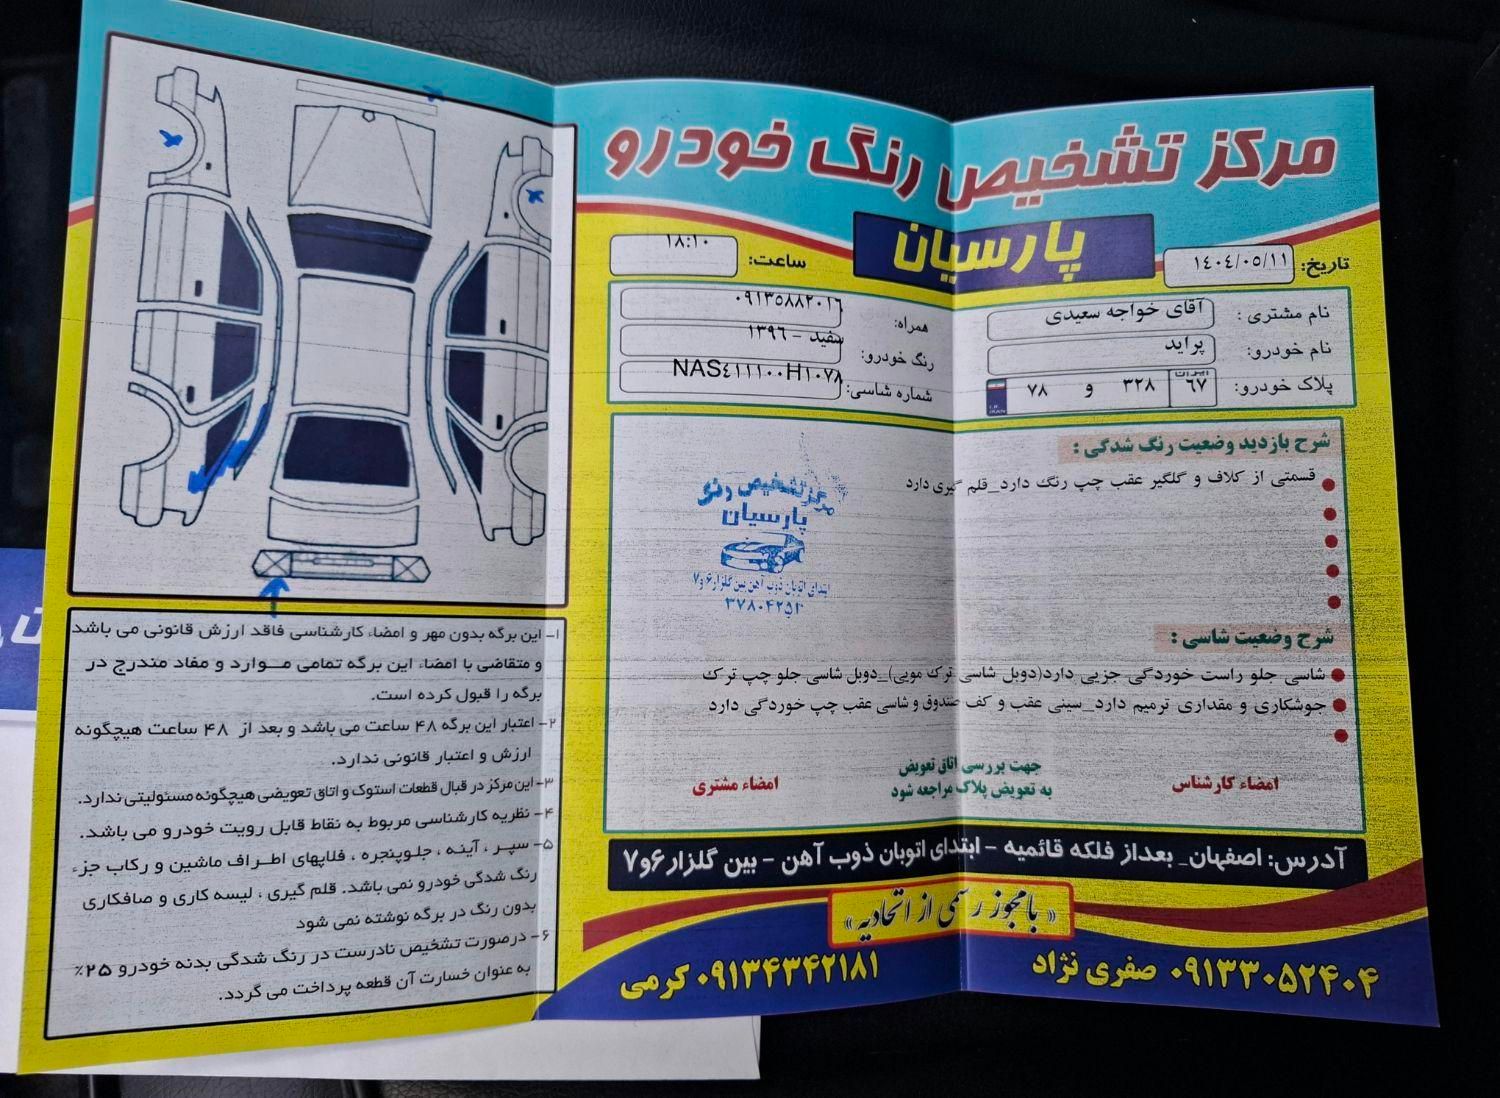 مرکز تشخیص رنگ خودرو
پارسیان
تاریخ: ۱٤۰٤/۰٥/۱۱
ساعت: ۱۸:۱۰
نام مشتری : آقای خواجه سعیدی
همراه: ۰۹۱۳٥۸۸۲۰۲٦
نام خودرو: پراید
رنگ خودرو: سفید - ۱۳۹٦
پلاک خودرو: ایران ٦۷ ۳۲۸ و ۷۸
I.R. IRAN
شماره شاسی: NAS٤۱۱۱۰۰H۱۰۷۸
شرح بازدید وضعیت رنگ شدگی :
قسمتی از کلاف و گلگیر عقب چپ رنگ دارد_قلم گیری دارد
مرکز تشخیص رنگ
پارسیان
ابتدای اتوبان ذوب آهن بین گلزار ۶ و ۷
۳۷۸۰۴۲۵۱
شرح وضعیت شاسی :
شاسی جلو راست خوردگی جزیی دارد(دوبل شاسی ترک مویی)_دوبل شاسی جلو چپ ترک
جوشکاری و مقداری ترمیم دارد_سینی عقب و کف صندوق و شاسی عقب چپ خوردگی دارد
امضاء کارشناس
جهت بررسی اتاق تعویض
به تعویض پلاک مراجعه شود
امضاء مشتری
آدرس: اصفهان_ بعداز فلکه قائمیه - ابتدای اتوبان ذوب آهن - بین گلزار ۶و۷
« با مجوز رسمی از اتحادیه »
۰۹۱۳۳۰۵۲۴۰۴ صفری نژاد
۰۹۱۳۴۳۴۲۱۸۱ کرمی
۱- این برگه بدون مهر و امضاء کارشناسی فاقد ارزش قانونی می باشد
و متقاضی با امضاء این برگه تمامی موارد و مفاد مندرج در
برگه را قبول کرده است.
۲- اعتبار این برگه ۴۸ ساعت می باشد و بعد از ۴۸ ساعت هیچگونه
ارزش و اعتبار قانونی ندارد.
۳- این مرکز در قبال قطعات استوک و اتاق تعویضی هیچگونه مسئولیتی ندارد.
۴- نظریه کارشناسی مربوط به نقاط قابل رویت خودرو می باشد.
۵- سپر ، آینه ، جلوپنجره ، فلاپهای اطراف ماشین و رکاب جزء
رنگ شدگی خودرو نمی باشد. قلم گیری ، لیسه کاری و صافکاری
بدون رنگ در برگه نوشته نمی شود
۶- درصورت تشخیص نادرست در رنگ شدگی بدنه خودرو ۲۵٪
به عنوان خسارت آن قطعه پرداخت می گردد.